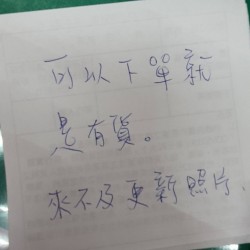 可以下單就
是有貨。
來不及更新照片、